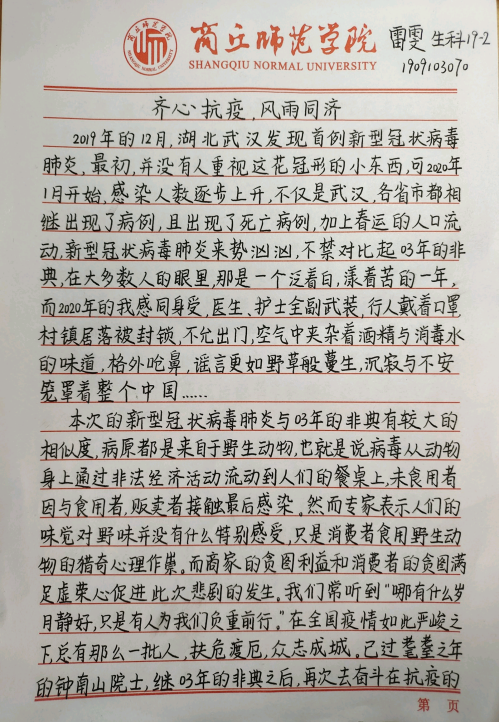 商丘师范学院
SHANGQIU NORMAL UNIVERSITY
雷雯 生科19-2
1909103070
齐心抗疫,风雨同济
2019年的12月,湖北武汉发现首例新型冠状病毒
肺炎,最初,并没有人重视这花冠形的小东西,可2020年
1月开始,感染人数逐步上升,不仅是武汉,各省市都相
继出现了病例,且出现了死亡病例,加上春运的人口流
动,新型冠状病毒肺炎来势汹汹,不禁对比起03年的非
典,在大多数人的眼里,那是一个泛着白,漾着苦的一年,
而2020年的我感同身受,医生、护士全副武装,行人戴着口罩,
村镇居落被封锁,不允出门,空气中夹杂着酒精与消毒水
的味道,格外呛鼻,谣言更如野草般蔓生,沉寂与不安
笼罩着整个中国……
本次的新型冠状病毒肺炎与03年的非典有较大的
相似度,病原都是来自于野生动物,也就是说病毒从动物
身上通过非法经济活动流动到人们的餐桌上,未食用者
因与食用者,贩卖者接触最后感染。然而专家表示人们的
味觉对野味并没有什么特别感受,只是消费者食用野生动
物的猎奇心理作祟。而商家的贪图利益和消费者的贪图满
足虚荣心促进此次悲剧的发生。我们常听到“哪有什么岁
月静好,只是有人为我们负重前行。”在全国疫情如此严峻之
下,总有那么一批人,扶危渡厄,众志成城。已过耄耋之年
的钟南山院士,继03年的非典之后,再次去奋斗在抗疫的
第 页